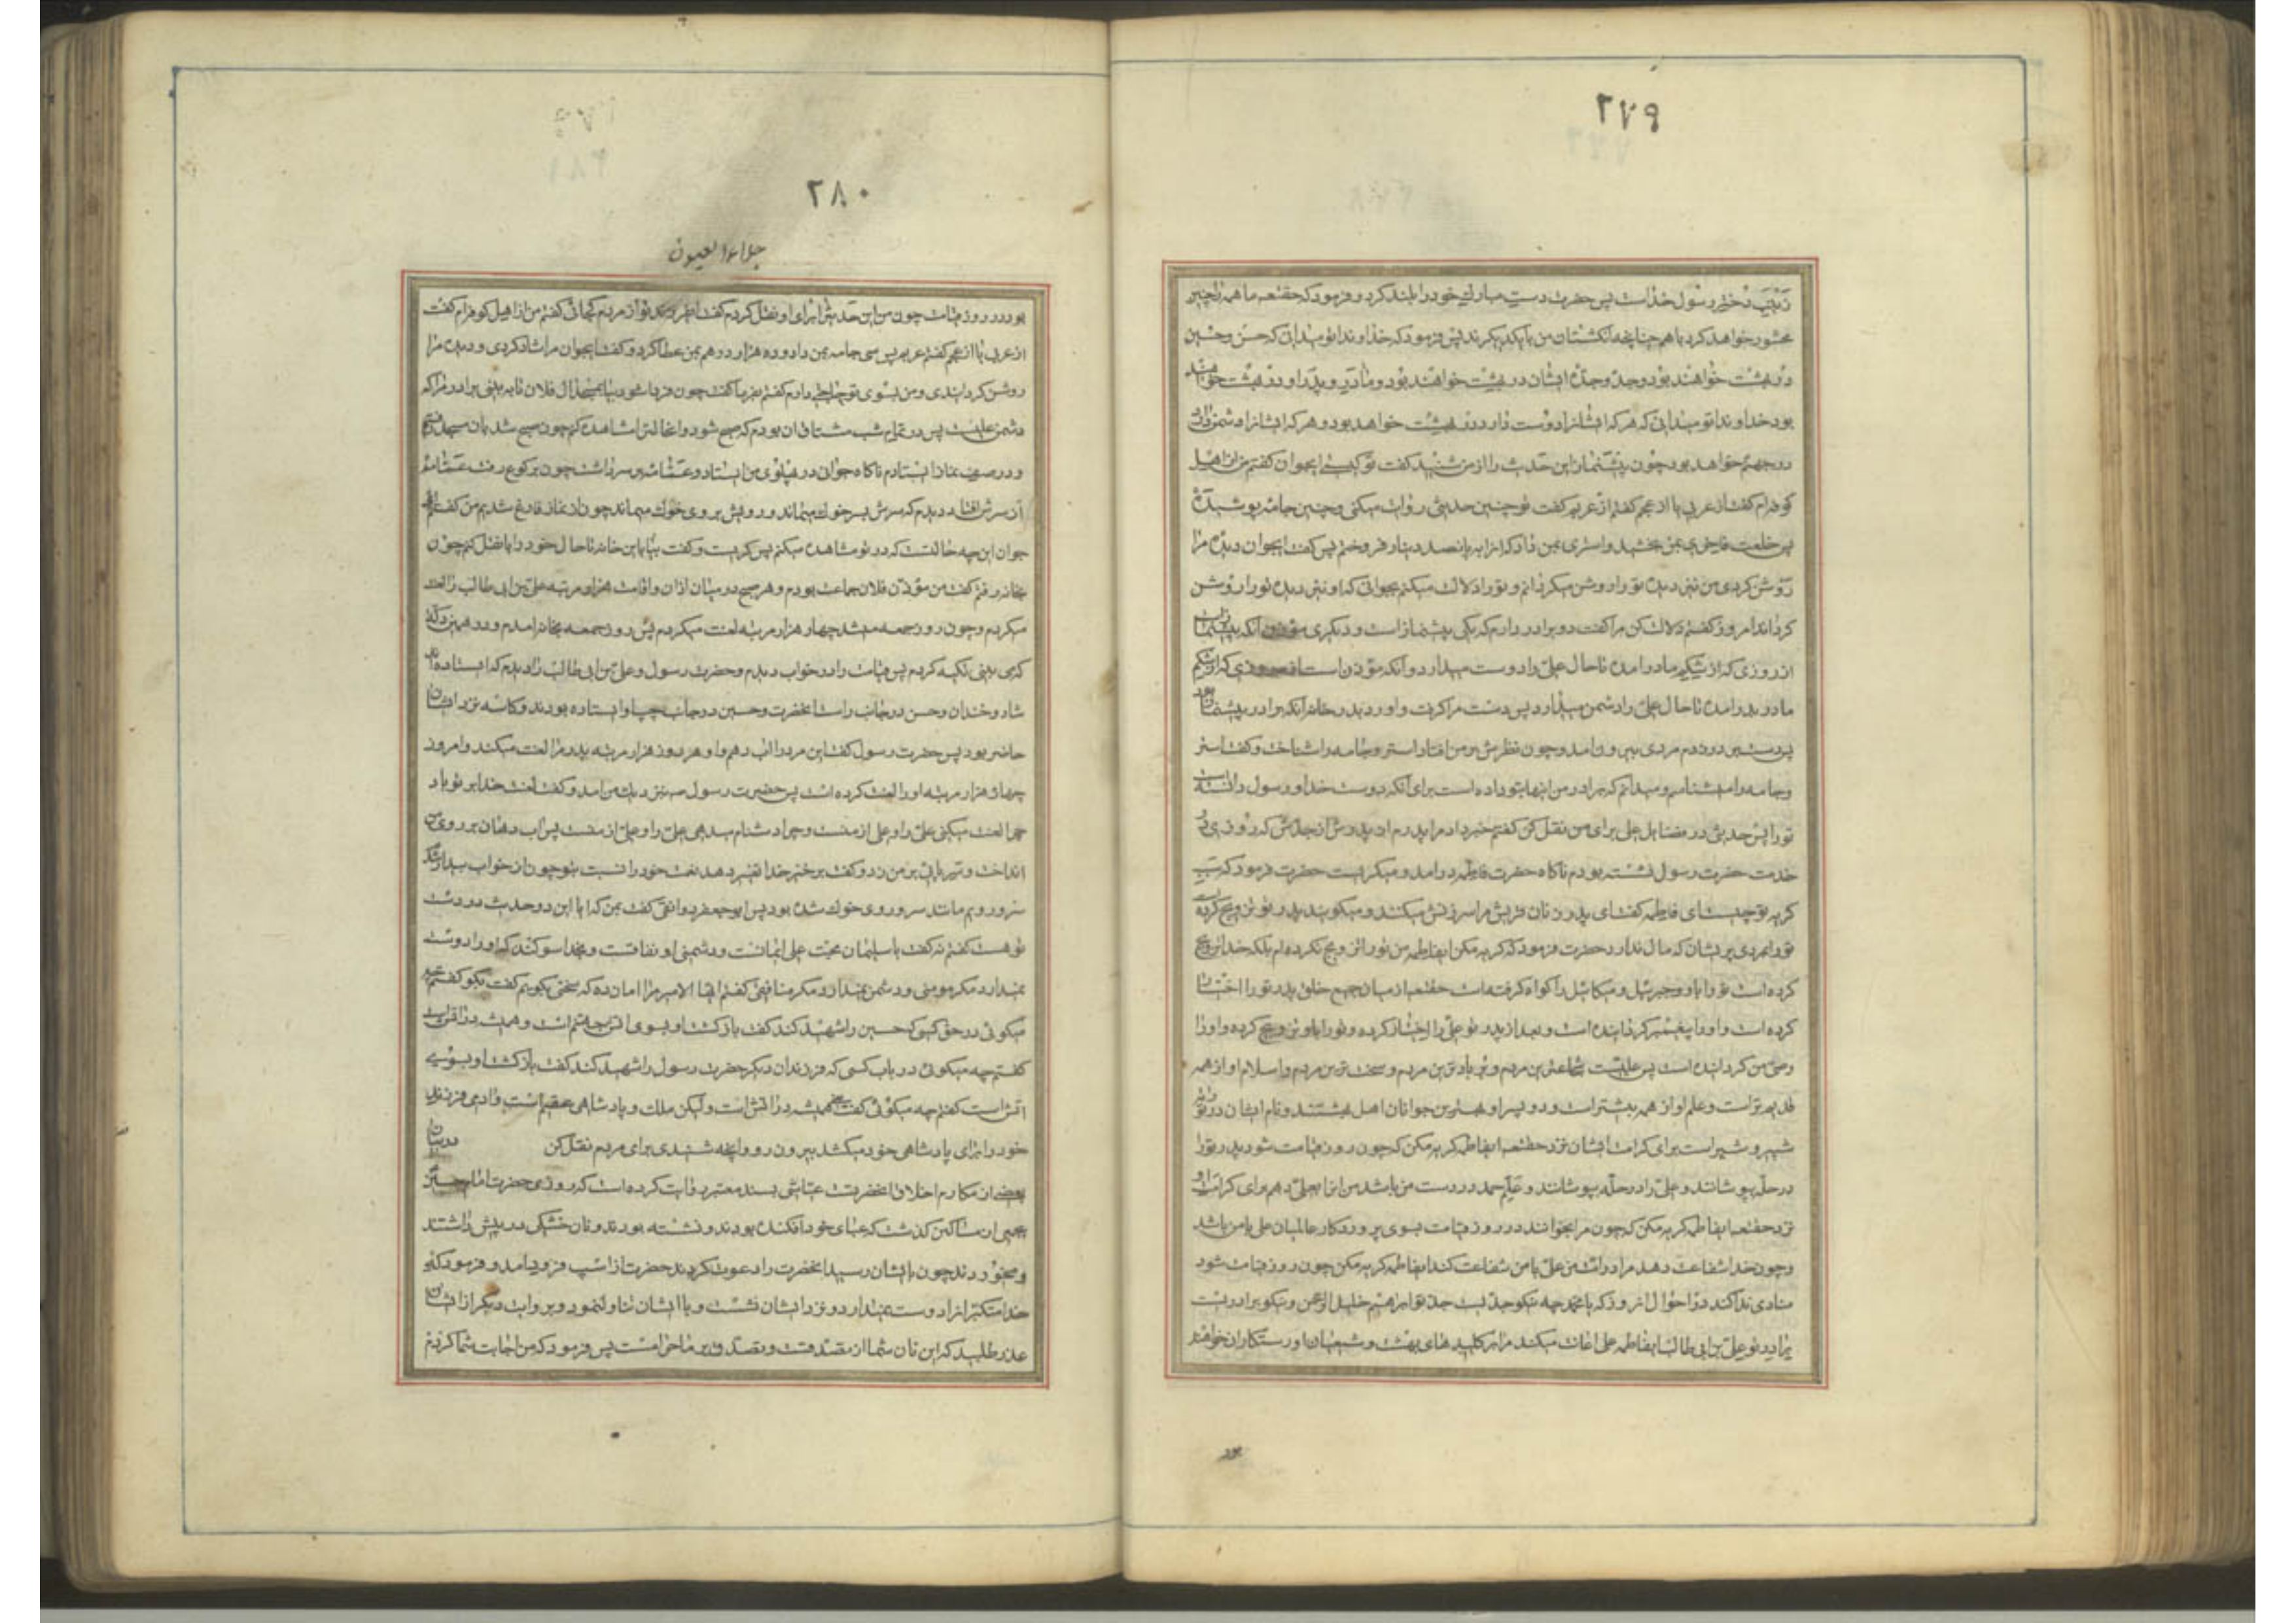 ۲۷۹
زینب دختر رسول خداست پس حضرت دست مبارک خود را بلند کرد و فرمود که حقتعه ما همه را چنین
محشور خواهد کرد با هم چنانچه انکشتان من با یکدیکرند پس فرمود که خداوندا تو میدانی که حسن و حسین
در بهشت خواهند بود و جد و جده ایشان در بهشت خواهند بود و مادر و پدر او در بهشت خواهند
بود خداوندا تو میدانی که هر که ایشانرا دوست دارد در بهشت خواهد بود و هر که ایشانرا دشمن دارد
در جهنم خواهد بود چون پیشنماز این حدیث را از من شنید کفت تو کیستی ایجوان کفتم من از اهل
کوفه‌ام کفت از عربی یا از عجم کفتم از عربم کفت تو چنین حدیثی روایت میکنی و چنین جامه پوشیده
پس خلعت فاخری بمن بخشید و استری بمن داد که انرا به پانصد دینار فروختم پس کفت ایجوان دیده مرا
روشن کردی من نیز دیده تو را روشن میکردانم و تو را دلالت میکنم بجوانی که او نیز دیده تو را روشن
کرداند امروز کفتم دلالت کن مرا کفت دو برادر دارم که یکی پیشنماز است و دیکری مؤذن انکه پیشنماز است
از روزی که از شکم مادر امده تا حال علی را دوست میدارد و انکه مؤذن است از روزی که از شکم
مادر بدر امده تا حال علی را دشمن میدارد پس دست مرا کرفت و اورد بدر خانه انکه برادر پیشنماز بود
پس در زدم مردی بیرون امد و چون نظرش بر من افتاد استر و جامه را شناخت و کفت استر
و جامه را میشناسم و میدانم که برادر من اینها بتو داده است برای انکه دوست خدا و رسول دانسته است
تو را پس حدیثی در فضایل علی برای من نقل کن کفتم خبر داد مرا پدرم از پدرش از جدش که روزی در
خدمت حضرت رسول نشسته بودم ناکاه حضرت فاطمه در امد و میکریست حضرت فرمود که سبب
کریه تو چیست ای فاطمه کفت ای پدر زنان قریش مرا سرزنش میکنند و میکویند پدر تو تزویج کرده است
تو را بمردی پریشان که مال ندارد حضرت فرمود که کریه مکن ایفاطمه من تو را تزویج نکرده‌ام بلکه خدا تزویج
کرده است تو را باو و جبرئیل و میکائیل را کواه کرفته است حقتعه از میان جمیع خلق پدر تو را اختیار
کرده است و او را پیغمبر کردانیده است و بعد از پدر تو علی را اختیار کرده و تو را باو تزویج کرده و او را
وصی من کردانیده است پس علیست شجاعترین مردم و بردبادترین مردم و سخی ترین مردم و اسلام او از همه
قدیم‌تر است و علم او از همه بیشتر است و دو پسر او بهترین جوانان اهل بهشتند و نام ایشان در توریة
شبر و شبیر است برای کرامت ایشان نزد حقتعه ایفاطمه کریه مکن که چون روز قیامت شود پدر تو را
در حله بپوشانند و علی را در حله بپوشانند و علم حمد در دست من باشد من انرا بعلی دهم برای کرامت او
نزد حقتعه ایفاطمه کریه مکن که چون مرا بخوانند در روز قیامت بسوی پروردکار عالمیان علی با من باشد
و چون خدا شفاعت دهد مرا در امت من علی با من شفاعت کند ایفاطمه کریه مکن چون روز قیامت شود
منادی ندا کند در احوال انروز که یا محمد چه نیکو جدیست جد تو ابراهیم خلیل الرحمن و نیکو برادریست
برادر تو علی بن ابی طالب ایفاطمه علی اعانت میکند مرا بر کلیدهای بهشت و شیعیان او رستکاران خواهند
بود
۲۸۰
جلاء العیون
بود در روز قیامت چون من این حدیث را برای او نقل کردم کفت ای فرزند تو از مردم کجائی کفتم من از اهل کوفه‌ام کفت
از عربی یا از عجم کفتم عربم پس سی جامه بمن داد و ده هزار درهم بمن عطا کرد و کفت ایجوان مرا شاد کردی و دیده مرا
روشن کردانیدی و من بسوی تو حاجتی دارم کفتم بفرما کفت چون فردا شود بیا بمسجد ال فلان تا به بینی برادر مرا که
دشمن علیست پس در تمام شب مشتاق ان بودم که صبح شود و انحالت را مشاهده کنم چون صبح شد بان مسجد رفتم
و در صف نماز ایستادم ناکاه جوانی در پهلوی من ایستاد و عمامه بر سر داشت چون برکوع رفت عمامه
از سرش افتاد دیدم که سرش بسر خوک میماند و رویش بروی خوک میماند چون از نماز فارغ شدیم من کفتم ای
جوان این چه حالتست که در تو مشاهده میکنم پس کریست و کفت بیا باین خانه تا حال خود را با نقل کنم چون
بخانه رفتم کفت من مؤذن فلان جماعت بودم و هر صبح در میان اذان و اقامت هزار مرتبه علی بن ابی طالب را لعنت
میکردم و چون روز جمعه میشد چهار هزار مرتبه لعنت میکردم پس روز جمعه بخانه امدم و در همین دکان
که می بینی تکیه کردم پس قیامت را در خواب دیدم و حضرت رسول و علی بن ابی طالب را دیدم که ایستاده اند
شاد و خندان و حسن در جانب راست انحضرت و حسین در جانب چپ او ایستاده بودند و کاسه نزد ایشان
حاضر بود پس حضرت رسول کفت این مرد را اب دهم و او هر روز هزار مرتبه پدر مرا لعنت میکند و امروز
چهار هزار مرتبه او را لعنت کرده است پس حضرت رسول ص بنزدیک من امد و کفت لعنت خدا بر تو باد
چرا لعنت میکنی علی را و علی از منست و چرا دشنام میدهی علی را و علی از منست پس اب دهان بر روی من
انداخت و سر پائی بر من زد و کفت برخیز خدا تغییر دهد نعمت خود را نسبت بتو چون از خواب بیدار شدم
سر و رویم مانند سر و روی خوک شده بود پس ابو جعفر دوانقی کفت بمن که ایا این دو حدیث در دست
تو هست کفتم نه کفت یا سلیمان محبت علی ایمانست و دشمنی او نفاقست و بخدا سوکند که او را دوست
نمیدارد مکر مومنی و دشمن نمیدارد مکر منافقی کفتم ایها الامیر مرا امان ده که سخنی بکویم کفت بکو کفتم چه
میکوئی در حق کسی که حسین را شهید کند کفت بازکشت او بسوی اتش جهنم است و همیشه در اتش است
کفتم چه میکوئی در باب کسی که فرزندان دیکر حضرت رسول را شهید کند کفت بازکشت او بسوی
اتش است کفتم چه میکوئی کفت همیشه در اتش است ولیکن ملک و پادشاهی عقیم است و ادمی فرزند
خود را برای پادشاهی خود میکشد بیرون رو و انچه شنیدی برای مردم نقل کن در بیان
بعضی از مکارم اخلاق انحضرتست عیاشی بسند معتبر روایت کرده است که روزی حضرت امام حسین
بجمعی از مساکین کذشت که عبای خود افکنده بودند و نشسته بودند و نان خشکی در پیش داشتند
و میخوردند چون با ایشان رسید انحضرت را دعوت کردند حضرت از اسب فرود امد و فرمود که
خدا متکبرانرا دوست نمیدارد و نزد ایشان نشست و با ایشان تناول نمود و بروایت دیکر از ایشان
عذر طلبید که این نان شما از تصدقست و تصدق بر ما حرامست پس فرمود که من اجابت شما کردم